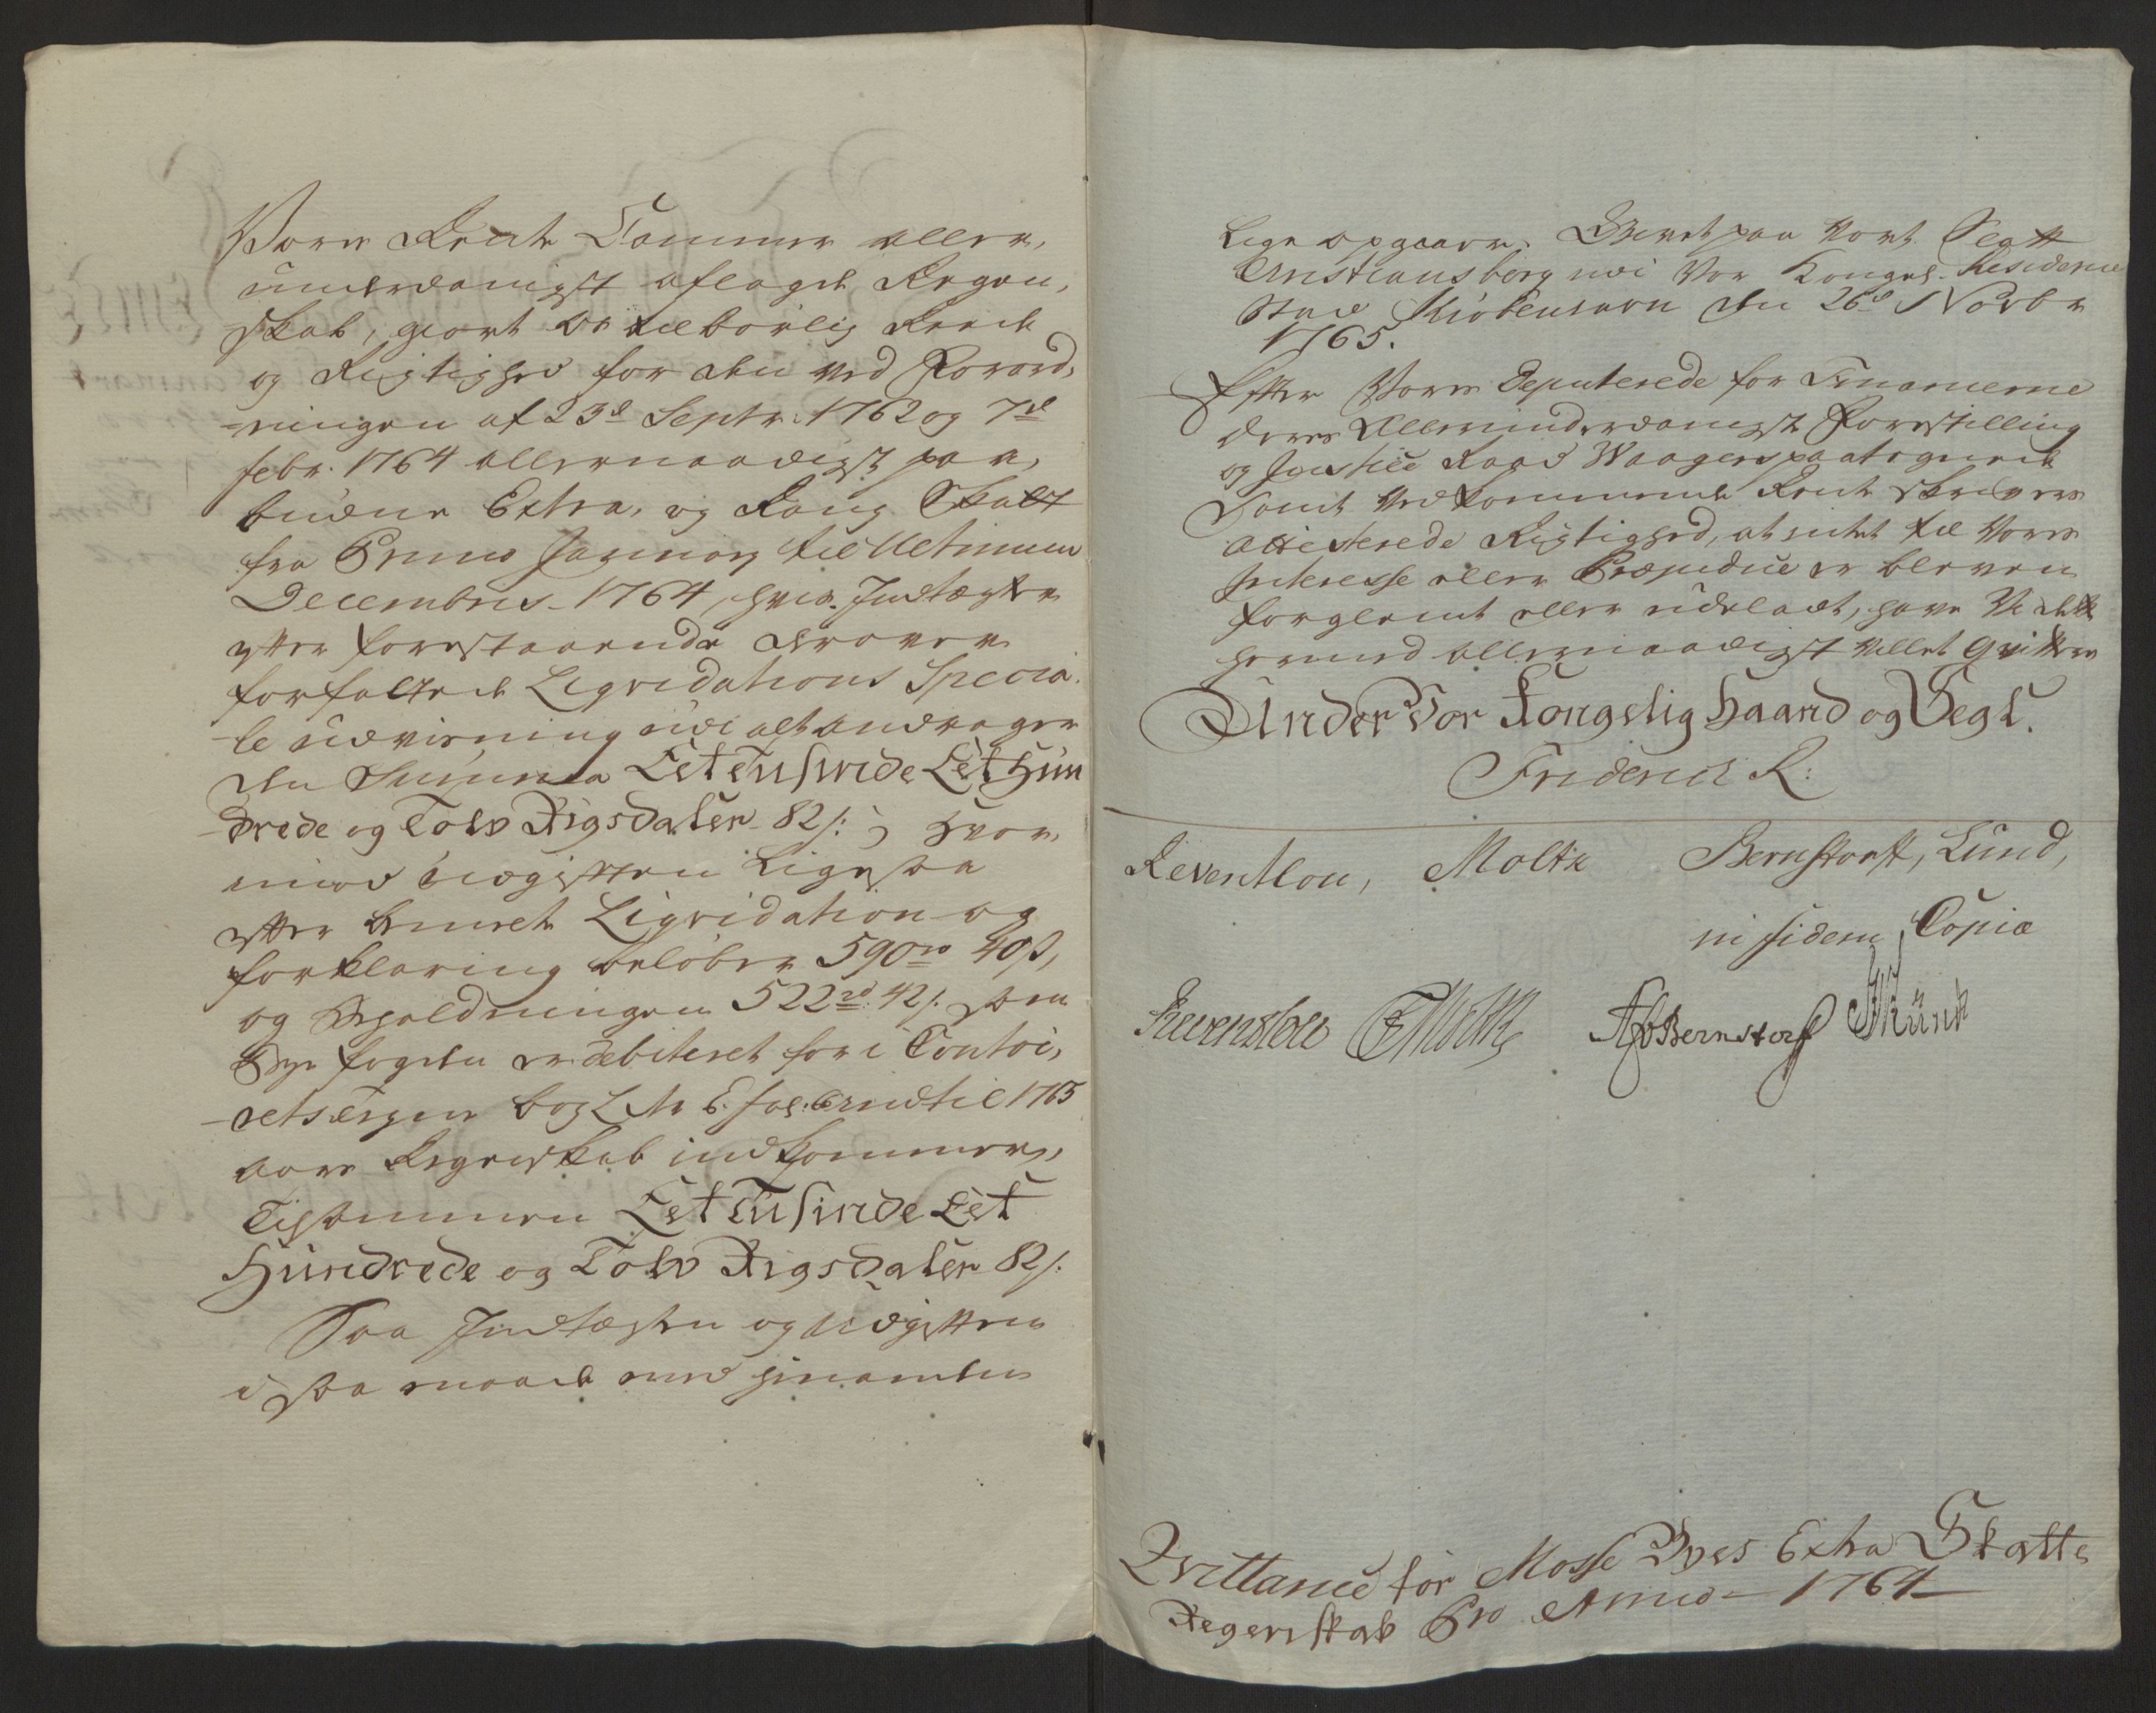 Vores Rente Cammer aller,
underdanigst aflagde Regen,
skab, giort os tilbørlig Reede
og Rigtighed for den ved Forord,
-ningen af 23d Septr. 1762 og 7de
febr. 1764 allernaadigst paa,
budene Extra, og Rang Skatt
fra Primo Januarij til Ultimum
Decembris 1764, hvis Indtægter
efter forestaaende derover
forfattede Liqvidations Specia,
le udvisning udi alt andrager
den Summa Eet Tusinde Eet Hun
drede og Tolv Rigsdaler 82 s:, hvor
imod Udgiften ligesaa
efter bemeldte Liqvidation og
forklaring beløber 590 rd 40 s,
og Beholdningen 522 rd: 42 s. som
Bye fogden er debiteret for i Contoi,
rets Bog Litr E. fol: indtil 1765
aars Regenskab indkommer,
Tilsammen Eet Tusinde Eet
Hundrede og Tolv Rigsdaler 82 s:
Saa Indtægten og Udgiften
i saa maade mod hinanden
lige opgaaer. Givet paa Vort Slott
Christiansborg udi Vor Kongel. Residence
Stad Kiøbenhavn den 26d Novbr
1765.
Efter Vores Deputerede for Finantzerne
deres Allerunderdanigste Forestilling
og Justice Raad Waagens paategnede
samt Vedkommende Rent skrivers
attesterede Rigtighed, at intet til Vores
Interesse eller Præjudice er bleven
forglemt eller udeladt, have Vi dette
hermed allernaadigst villet qvittere
Under Vor Kongelig Haand og Segl.
Friderich R:
Reventlou, Moltke Bernstorff, Lund,
in fidem Copiæ
Reventlow Moltke Bernstorff
Qvittance for Mosse Byes Extra Skatte
Regenskab Pro Anno 1764